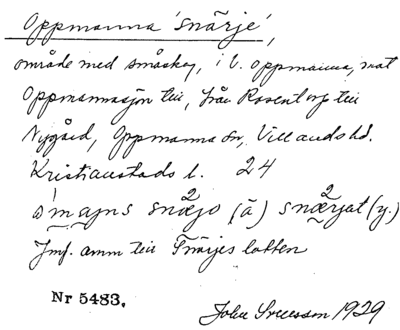 Oppmanna 'snärje',
område med småskog, i V. Oppmanna, mot
Oppmannasjön till, från Rosentorp till
Nygård, Oppmanna sn, Villands hd.
Kristianstads l. 24
snæjo (ä) snærjat (y.)
Jmf. amm till Snärjes lotten
Nr 5483.
John Svensson 1929